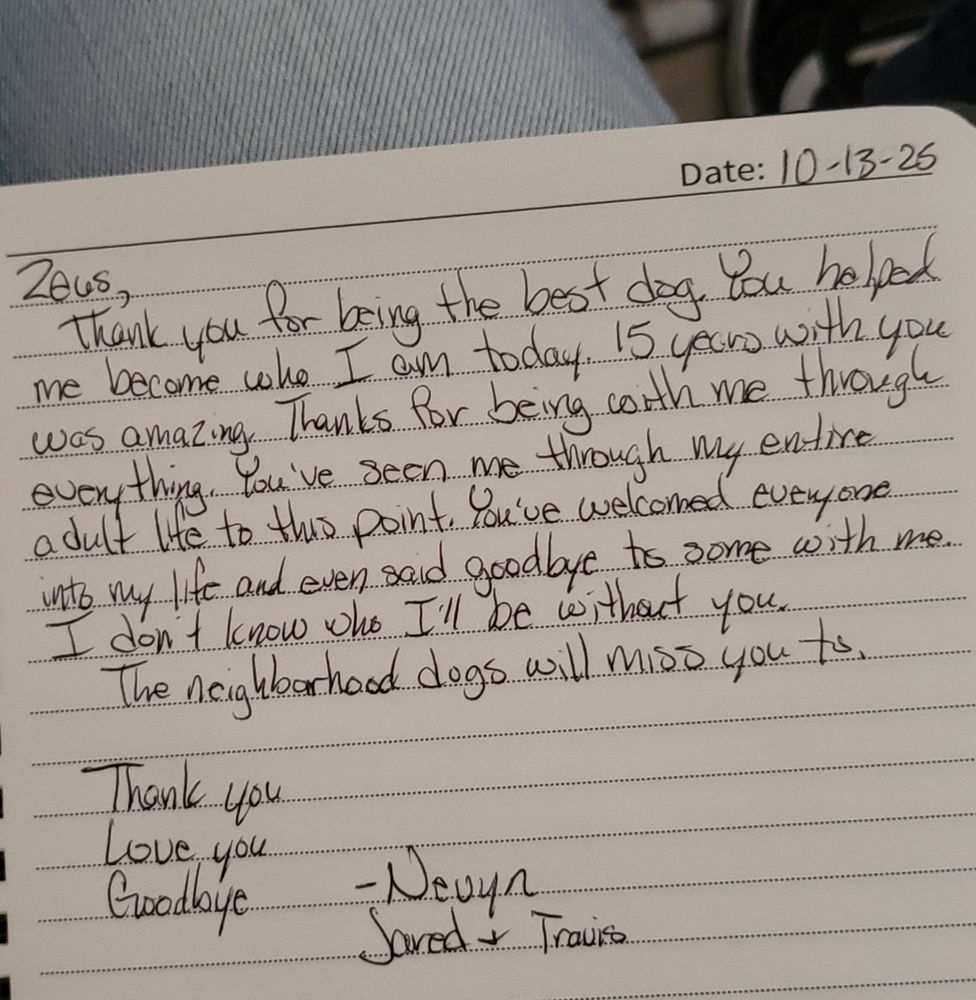 Date: 10-13-25
Zeus,
Thank you for being the best dog. You helped
me become who I am today. 15 years with you
was amazing. Thanks for being with me through
everything. You've seen me through my entire
adult life to this point. You've welcomed everyone
into my life and even said goodbye to some with me.
I don't know who I'll be without you.
The neighborhood dogs will miss you to.
Thank you
Love you
Goodbye -Nevyn
Jared + Travis